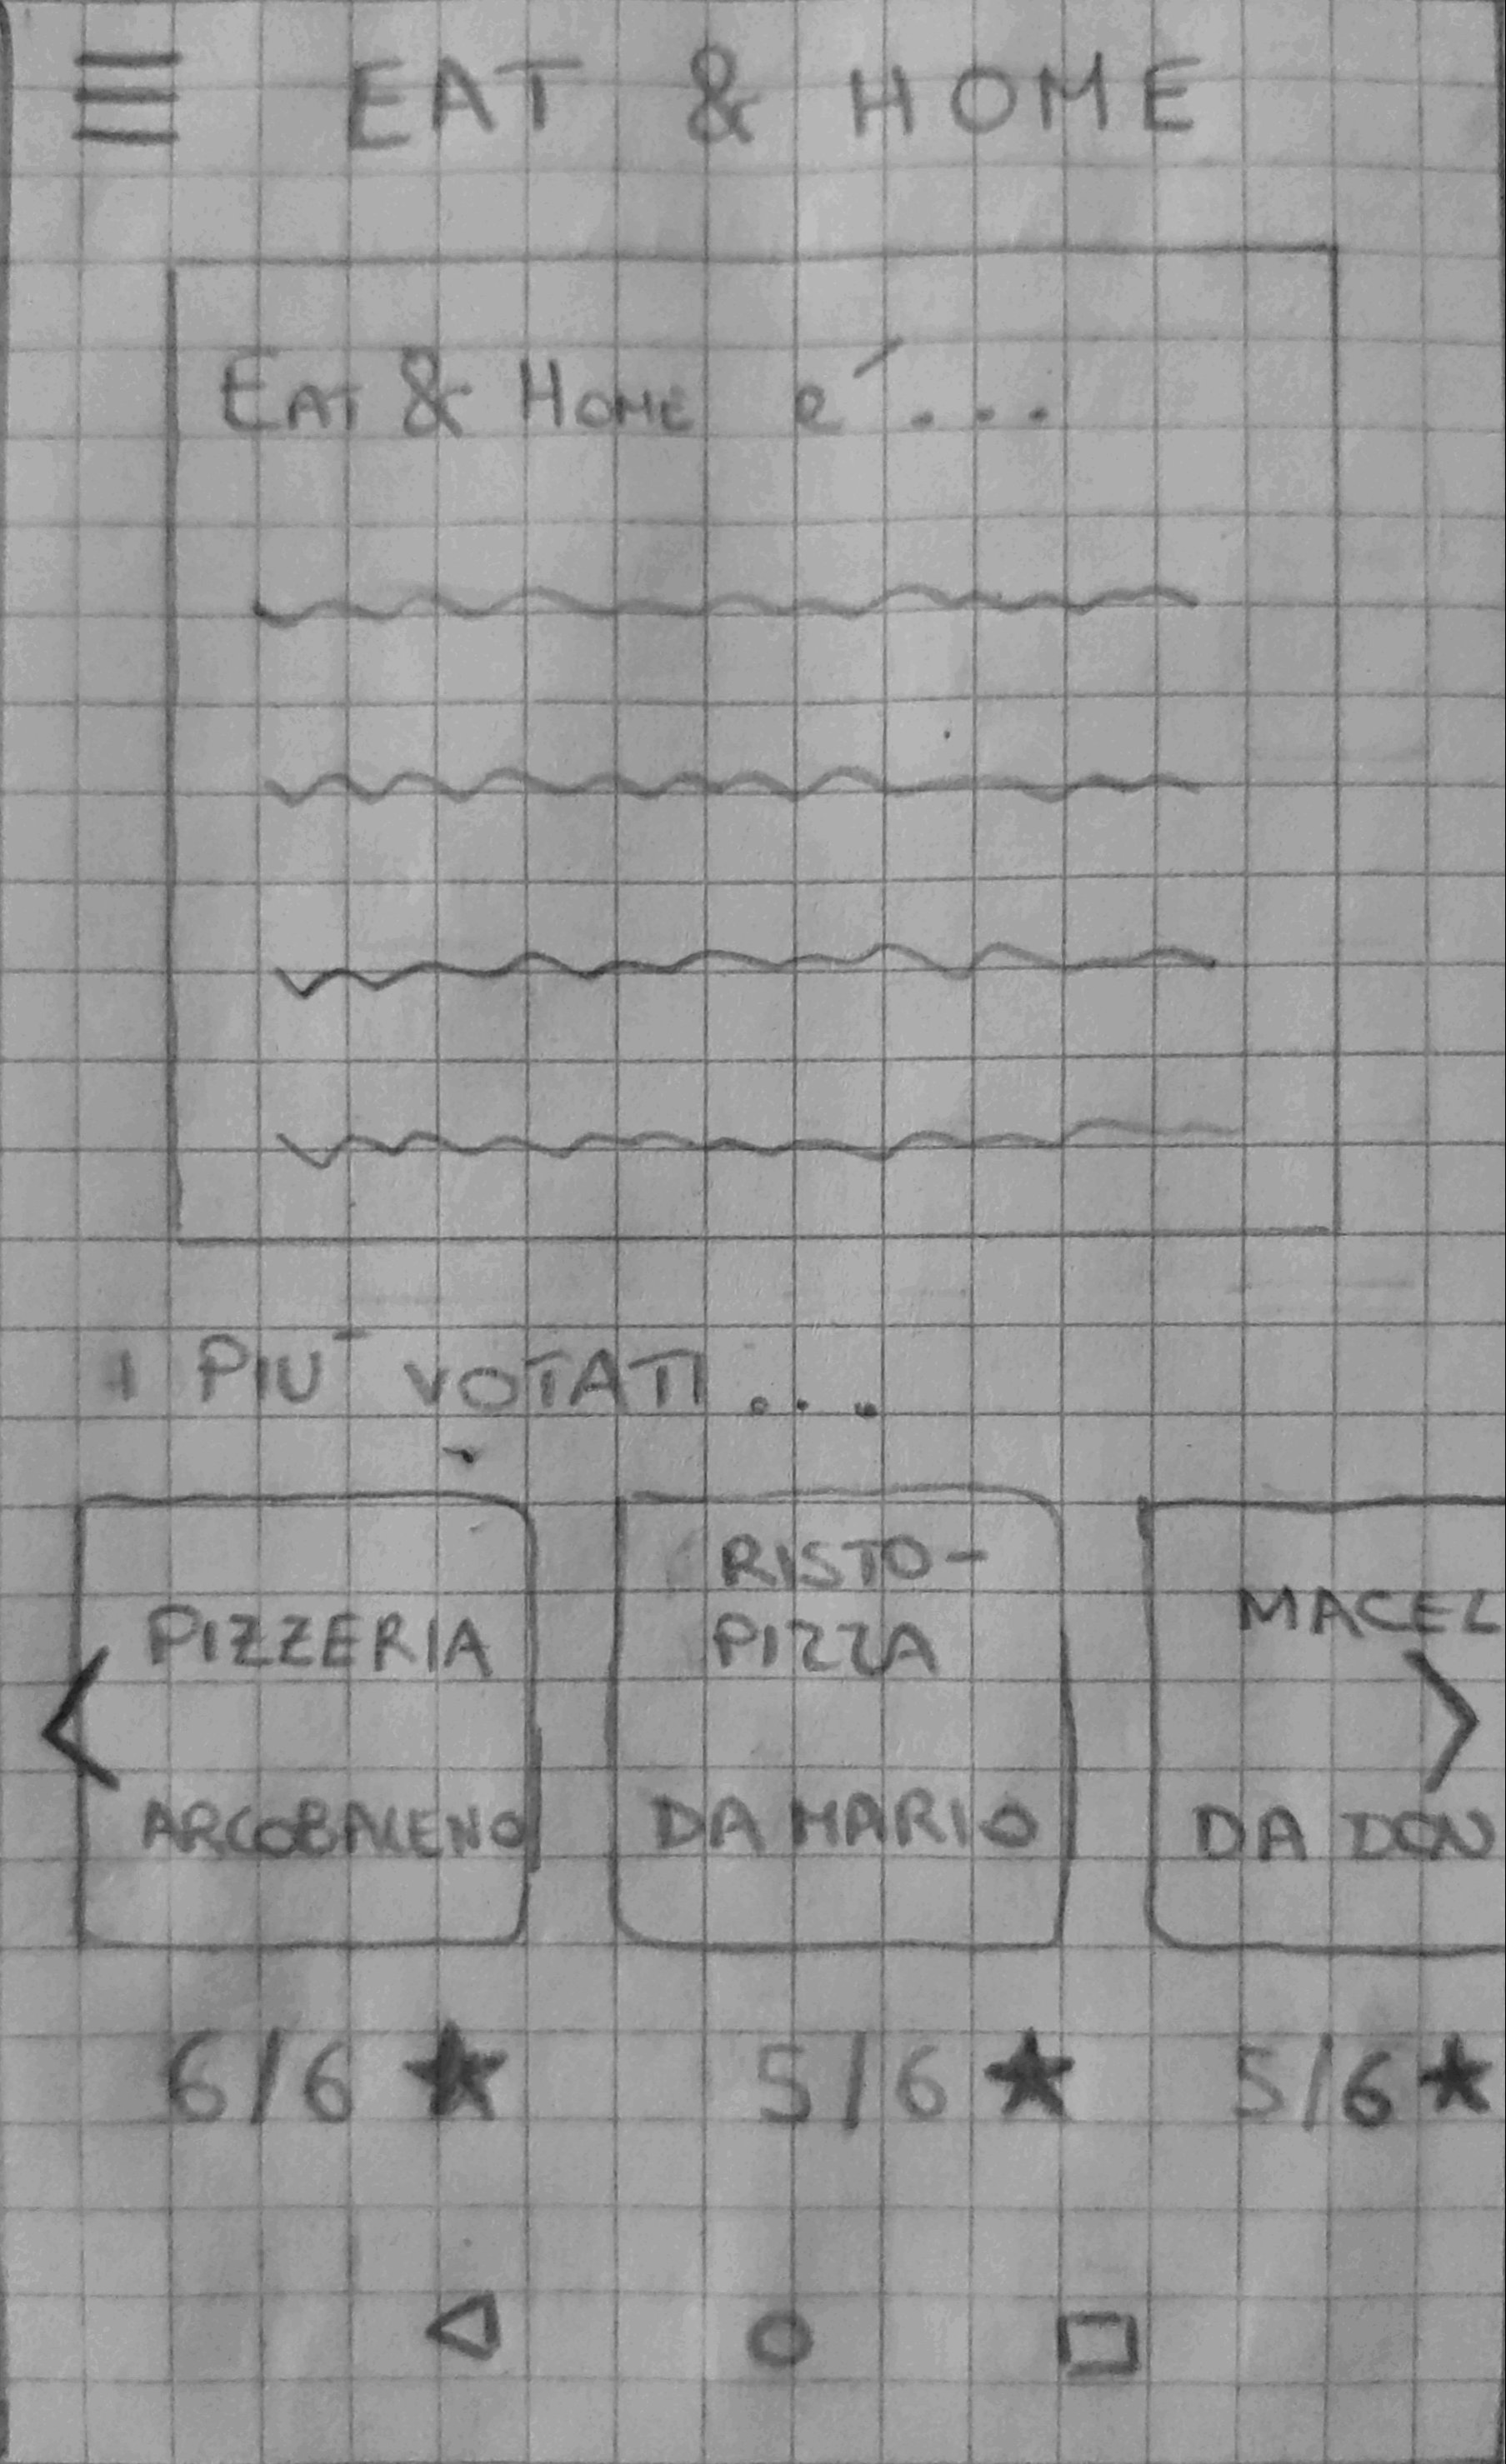 EAT & HOME
EAT & HOME e´...
I PIU' VOTATI...
PIZZERIA
ARCOBALENO
RISTO-
PIZZA
DA MARIO
MACEL
DA DON
6/6 ★
5/6 ★
5/6 ★